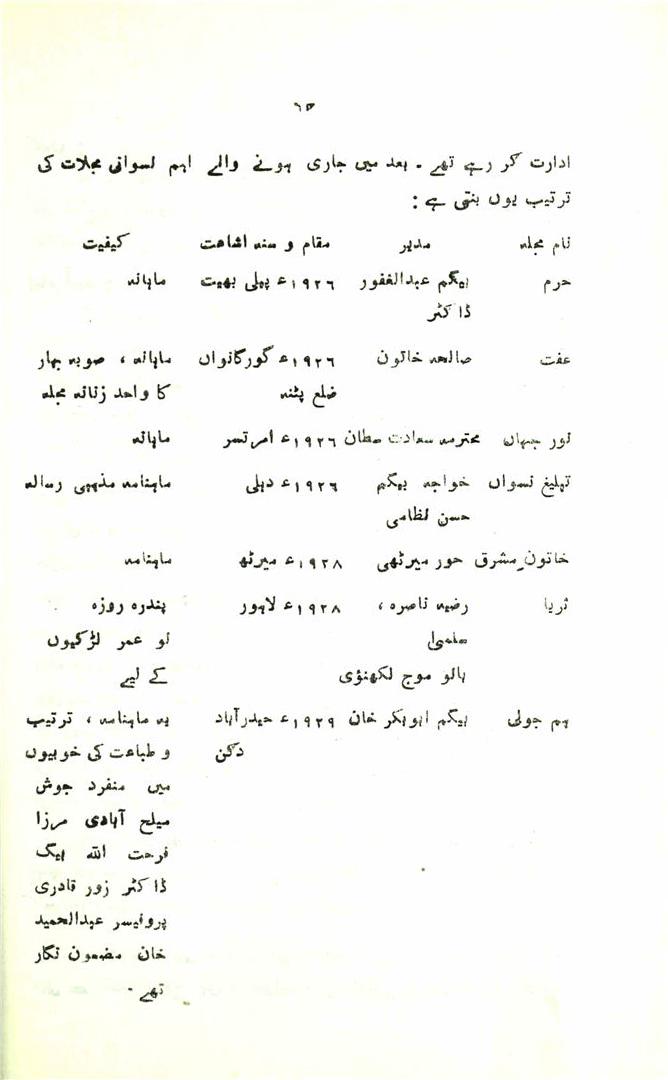 ۶۵
ادارت کر رہے تھے ۔ بعد میں جاری ہونے والے اہم نسوانی مجلات کی
ترتیب یوں بنتی ہے :
نام مجلہ مدیر مقام و سنہ اشاعت کیفیت
حرم بیگم عبدالغفور ۱۹۲۶ء پیلی بھیت ماہانہ
ڈاکٹر
عفت صالحہ خاتون ۱۹۲۶ء گورگانواں ماہانہ ، صوبہ بہار
ضلع پٹنہ کا واحد زنانہ مجلہ
نور جہاں محترمہ سعادت سلطان ۱۹۲۶ء امرتسر ماہانہ
تبلیغ نسواں خواجہ بیگم ۱۹۲۶ء دہلی ماہنامہ مذہبی رسالہ
حسن نظامی
خاتونِ مشرق حور میرٹھی ۱۹۲۸ء میرٹھ ماہنامہ
ثریا رضیہ ناصرہ ، ۱۹۲۸ء لاہور پندرہ روزہ
سلمیٰ نو عمر لڑکیوں
بانو موج لکھنؤی کے لیے
ہم جولی بیگم ابوبکر خان ۱۹۲۹ء حیدرآباد یہ ماہنامہ ، ترتیب
دکن و طباعت کی خوبیوں
میں منفرد جوش
میلح آبادی مرزا
فرحت اللہ بیگ
ڈاکٹر زور قادری
پروفیسر عبدالحمید
خان مضمون نگار
تھے ۔